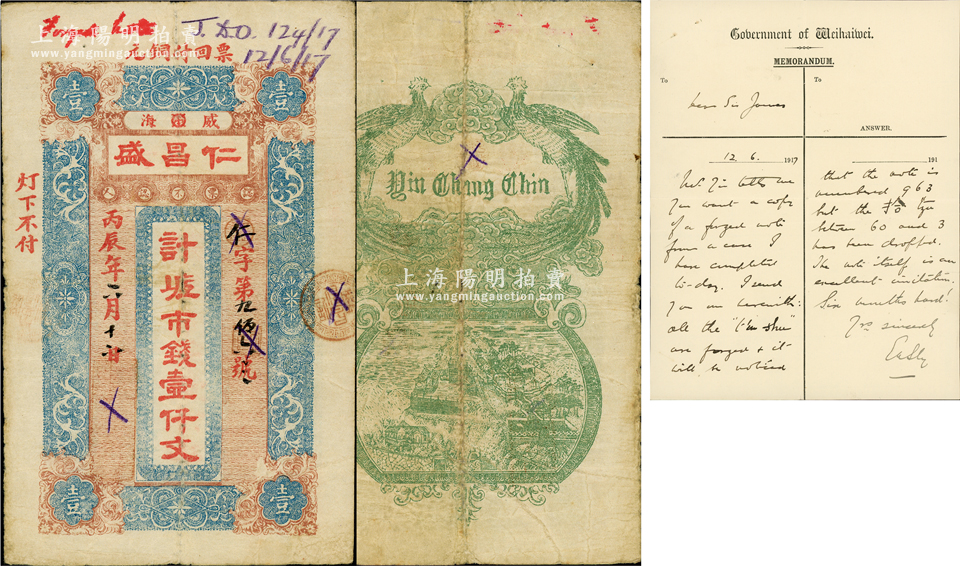 J. &O. 124/17
12/6/17
回票
壹
壹
威海
仁昌盛
灯下不付
丙辰年六月十
字第
號
計墟市錢壹仟文
壹
壹
上海陽明拍賣
www.yangmingauction.com
Yin Chang Chin
上海陽明拍賣
www.yangmingauction.com
Government of Weihaiwei.
MEMORANDUM.
To
Dear Sir James
12. 6. 1917
Mr. Yin tells me
you want a copy
of a forged note
from a case I
have completed
to-day. I send
you one herewith:
all the
are forged & it
will be noticed
To
ANSWER.
191
that the note is
numbered 963
but the
between 60 and 3
has been dropped.
The note itself is an
excellent imitation.
Six months hard!
Yrs sincerely